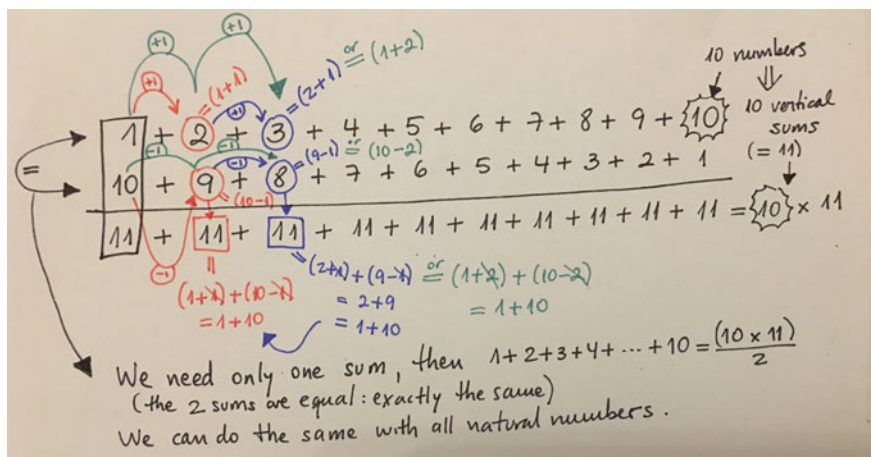 +1 +1 or = (1+2)
+1 = (1+1) +1 = (2+1) 10 numbers
⇓
1 + 2 + 3 + 4 + 5 + 6 + 7 + 8 + 9 + 10 10 vertical sums (= 11)
= -1 -1 -1 = (9-1) or = (10-2)
10 + 9 + 8 + 7 + 6 + 5 + 4 + 3 + 2 + 1
-1 = (10-1)
11 + 11 + 11 + 11 + 11 + 11 + 11 + 11 + 11 + 11 = 10 × 11
-1 = = (2+1) + (9-1) or = (1+2) + (10-2)
(1+1) + (10-1) = 2+9 = 1+10
= 1+10 = 1+10
We need only one sum, then 1+2+3+4+ ... +10 = (10 × 11)/2
(the 2 sums are equal: exactly the same)
We can do the same with all natural numbers.